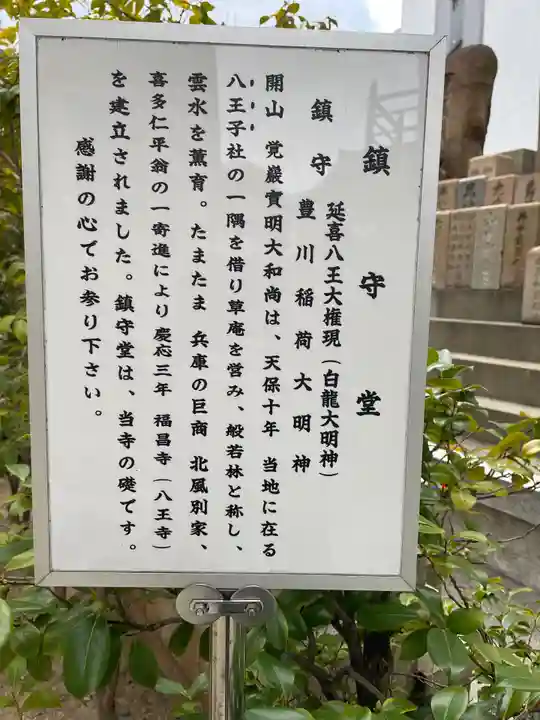 鎮守堂
鎮守 延喜八王大権現(白龍大明神)
鎮守 豊川稲荷大明神
開山 覚巌實明大和尚は、天保十年 当地に在る
八王子社の一隅を借り草庵を営み、般若林と称し、
雲水を薫育。たまたま 兵庫の巨商 北風別家、
喜多仁平翁の一寄進により慶応三年 福昌寺(八王寺)
を建立されました。鎮守堂は、当寺の礎です。
感謝の心でお参り下さい。